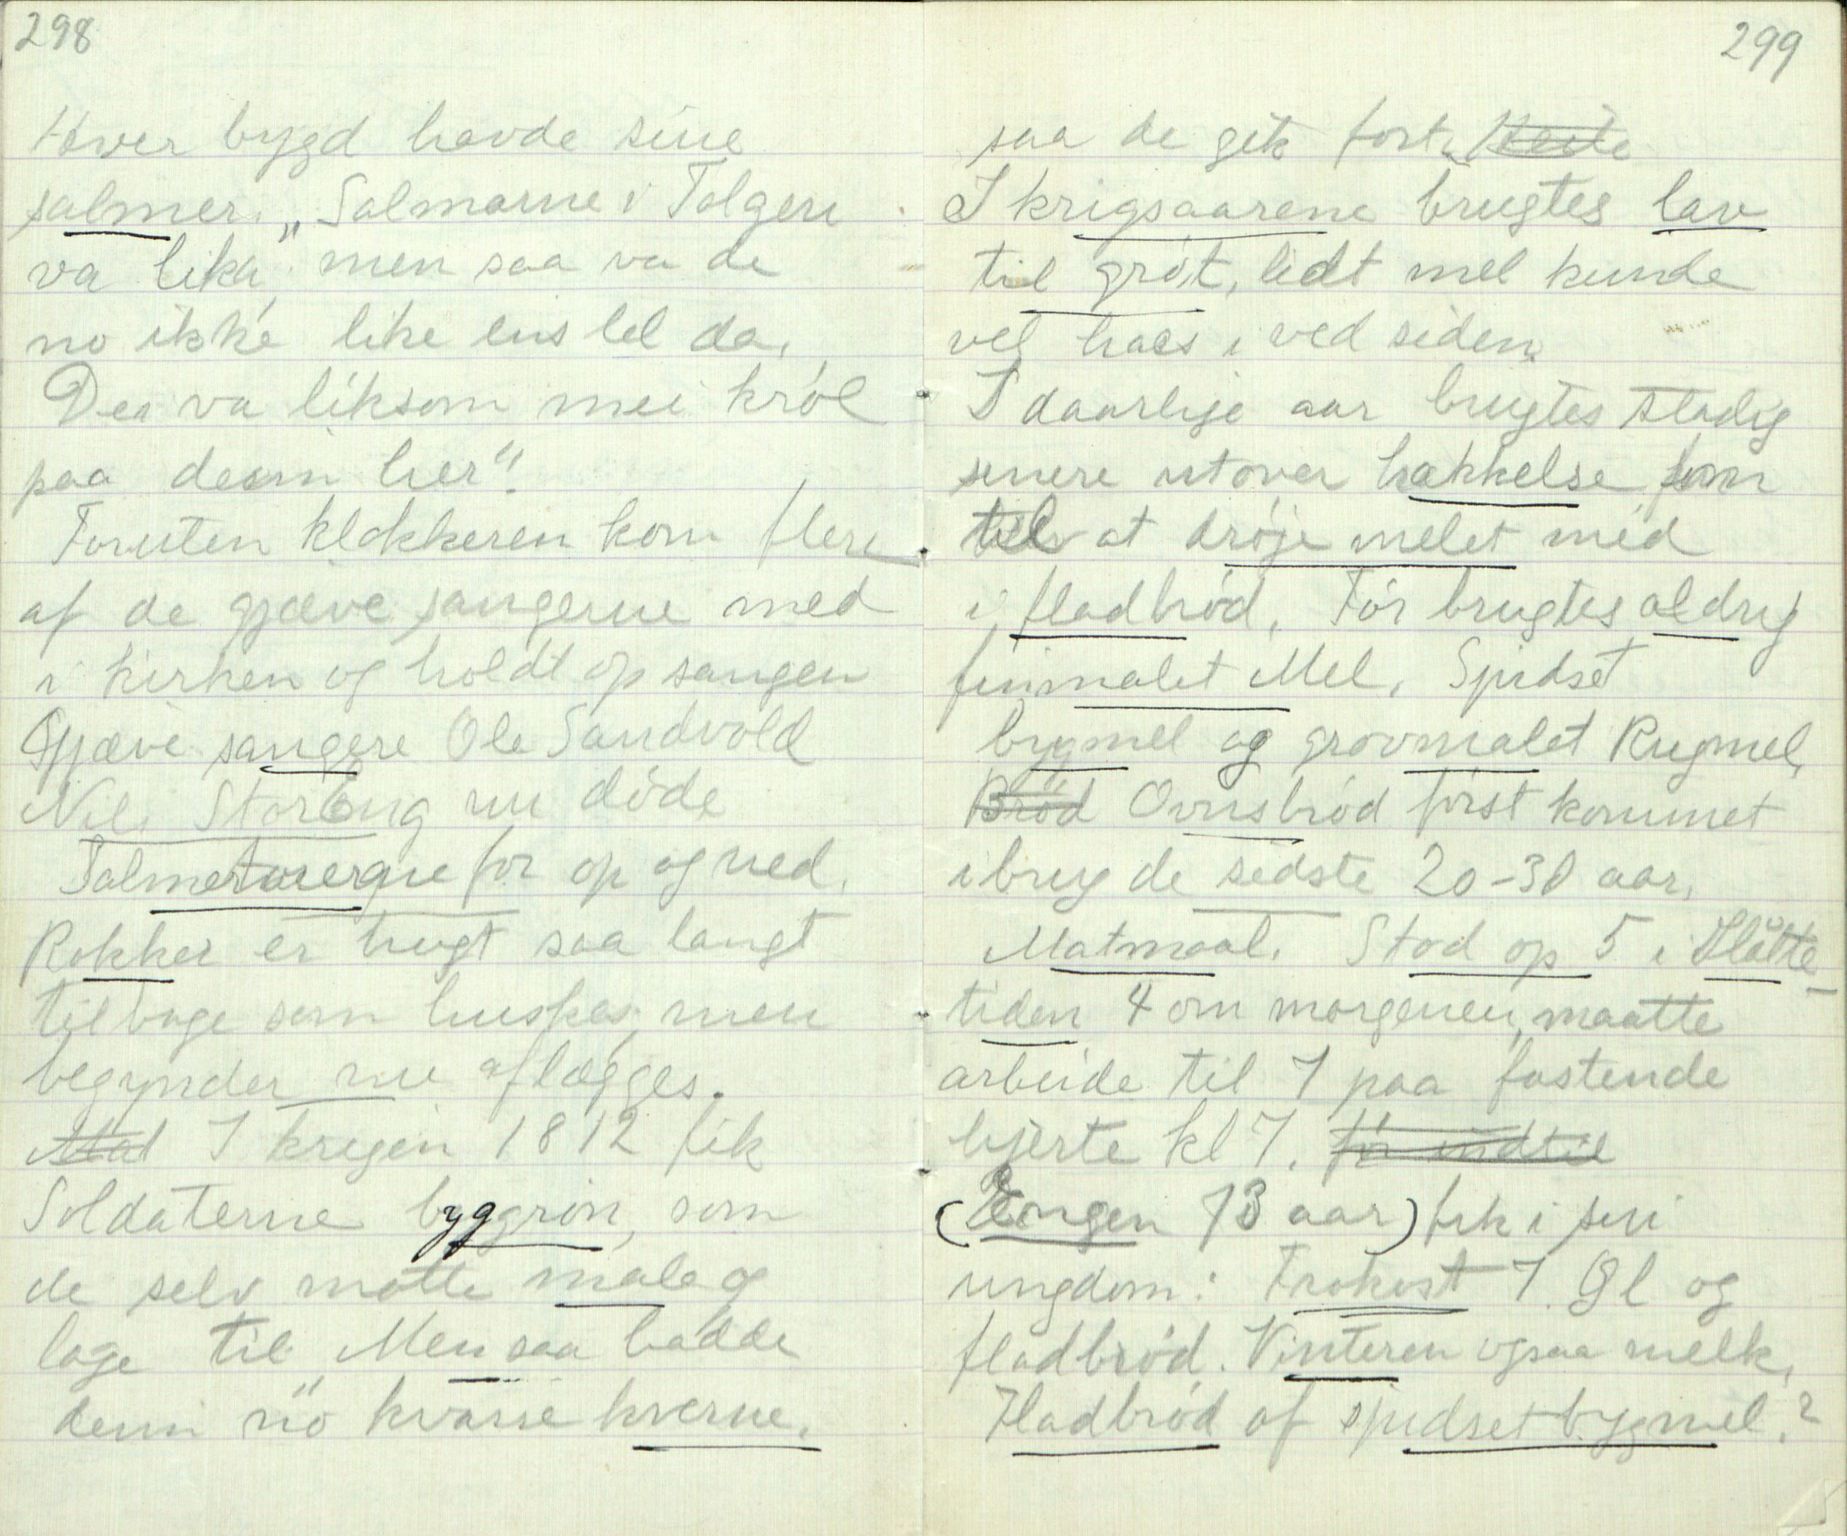 298
Hver bygd havde sine
salmer. „Salmarne i Tolgen
va lika" men saa va de
no ikke like ens lel da.
Dei va liksom mei król
paa desin her".
Foruten klokkeren kom flere
af de gjæve sangerne med
i kirken og holdt op sangen
Gjæve sangere Ole Sandvold
Nils Storeng nu døde
Salmetonerne for op og ned.
Rokker er brugt saa langt
tilbage som huskes, men
begynder nu aflægges.
Mad I krigen 1812 fik
Soldaterne byggron, som
de selv motte male og
lage til. Men saa hadde
denn "nö kvasse kverne.
299
saa de gik fort.
I krigsaarene brugtes lav
til grøt, lidt mel kunde
vel haes i ved siden.
I daarlige aar brugtes stadig
senere utover hakkelse som
til at drøje melet med
i fladbrød. Før brugtes aldrig
finmalet Mel. Spidset
bygmel og grovmalet Rugmel,
Brød Ovnsbrød først kommet
i brug de sidste 20-30 aar.
Matmaal. Stod op 5 i Slåtte-
tiden 4 om morgenen, maatte
arbeide til 7 paa fastende
hjerte kl 7. før indtil
(Engen 73 aar) fik i sin
ungdom: Frokost 7. Øl og
fladbrød. Vinteren ogsaa melk.
Fladbrød af spidset bygmel.?